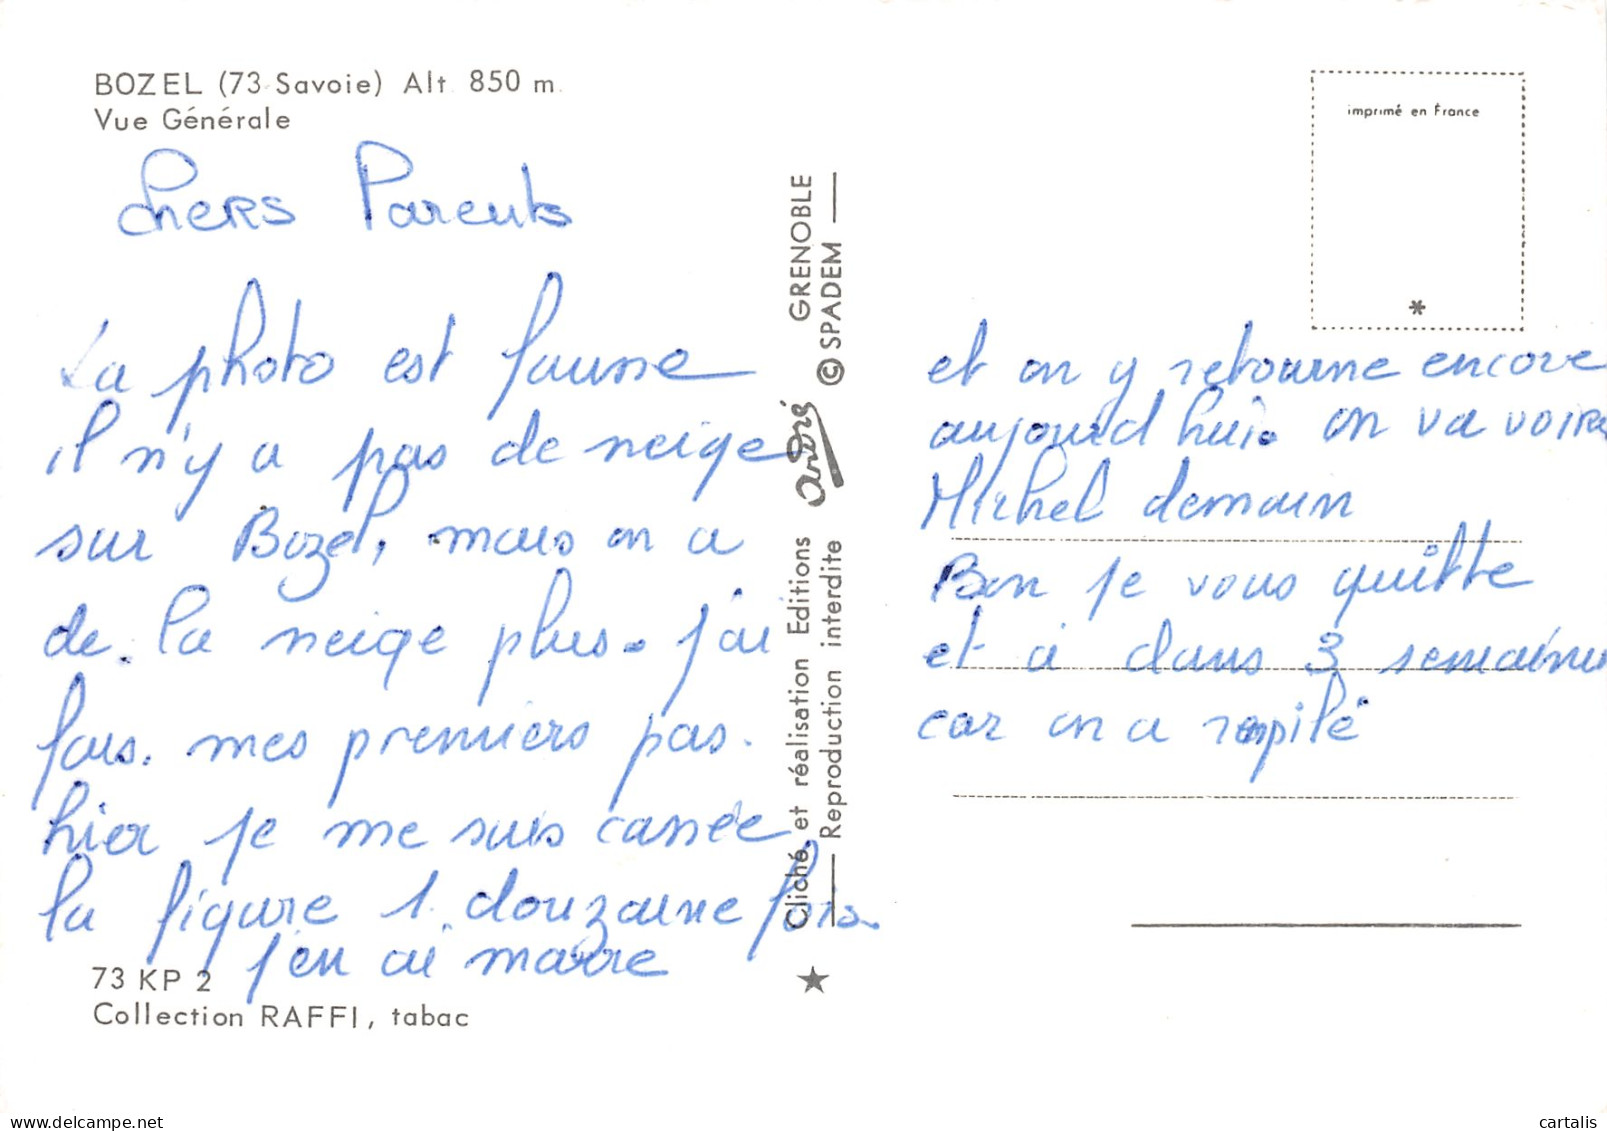 BOZEL (73-Savoie) Alt. 850 m.
Vue Générale
Chers Parents
La photo est fausse
il n'y a pas de neige
sur Bozel, mais on a
de la neige plus. j'ai
fais. mes premiers pas.
hier je me suis cassée
la figure 1. douzaine fois.
j'en ai marre
73 KP 2
Collection RAFFI, tabac
Cliché et réalisation Editions ardrix GRENOBLE
Reproduction interdite © SPADEM
imprimé en France
*
et on y retourne encore
aujourd hui. on va voir
Michel demain
Bon je vous quitte
et à dans 3 semaines
car on a rapilé
cartalis